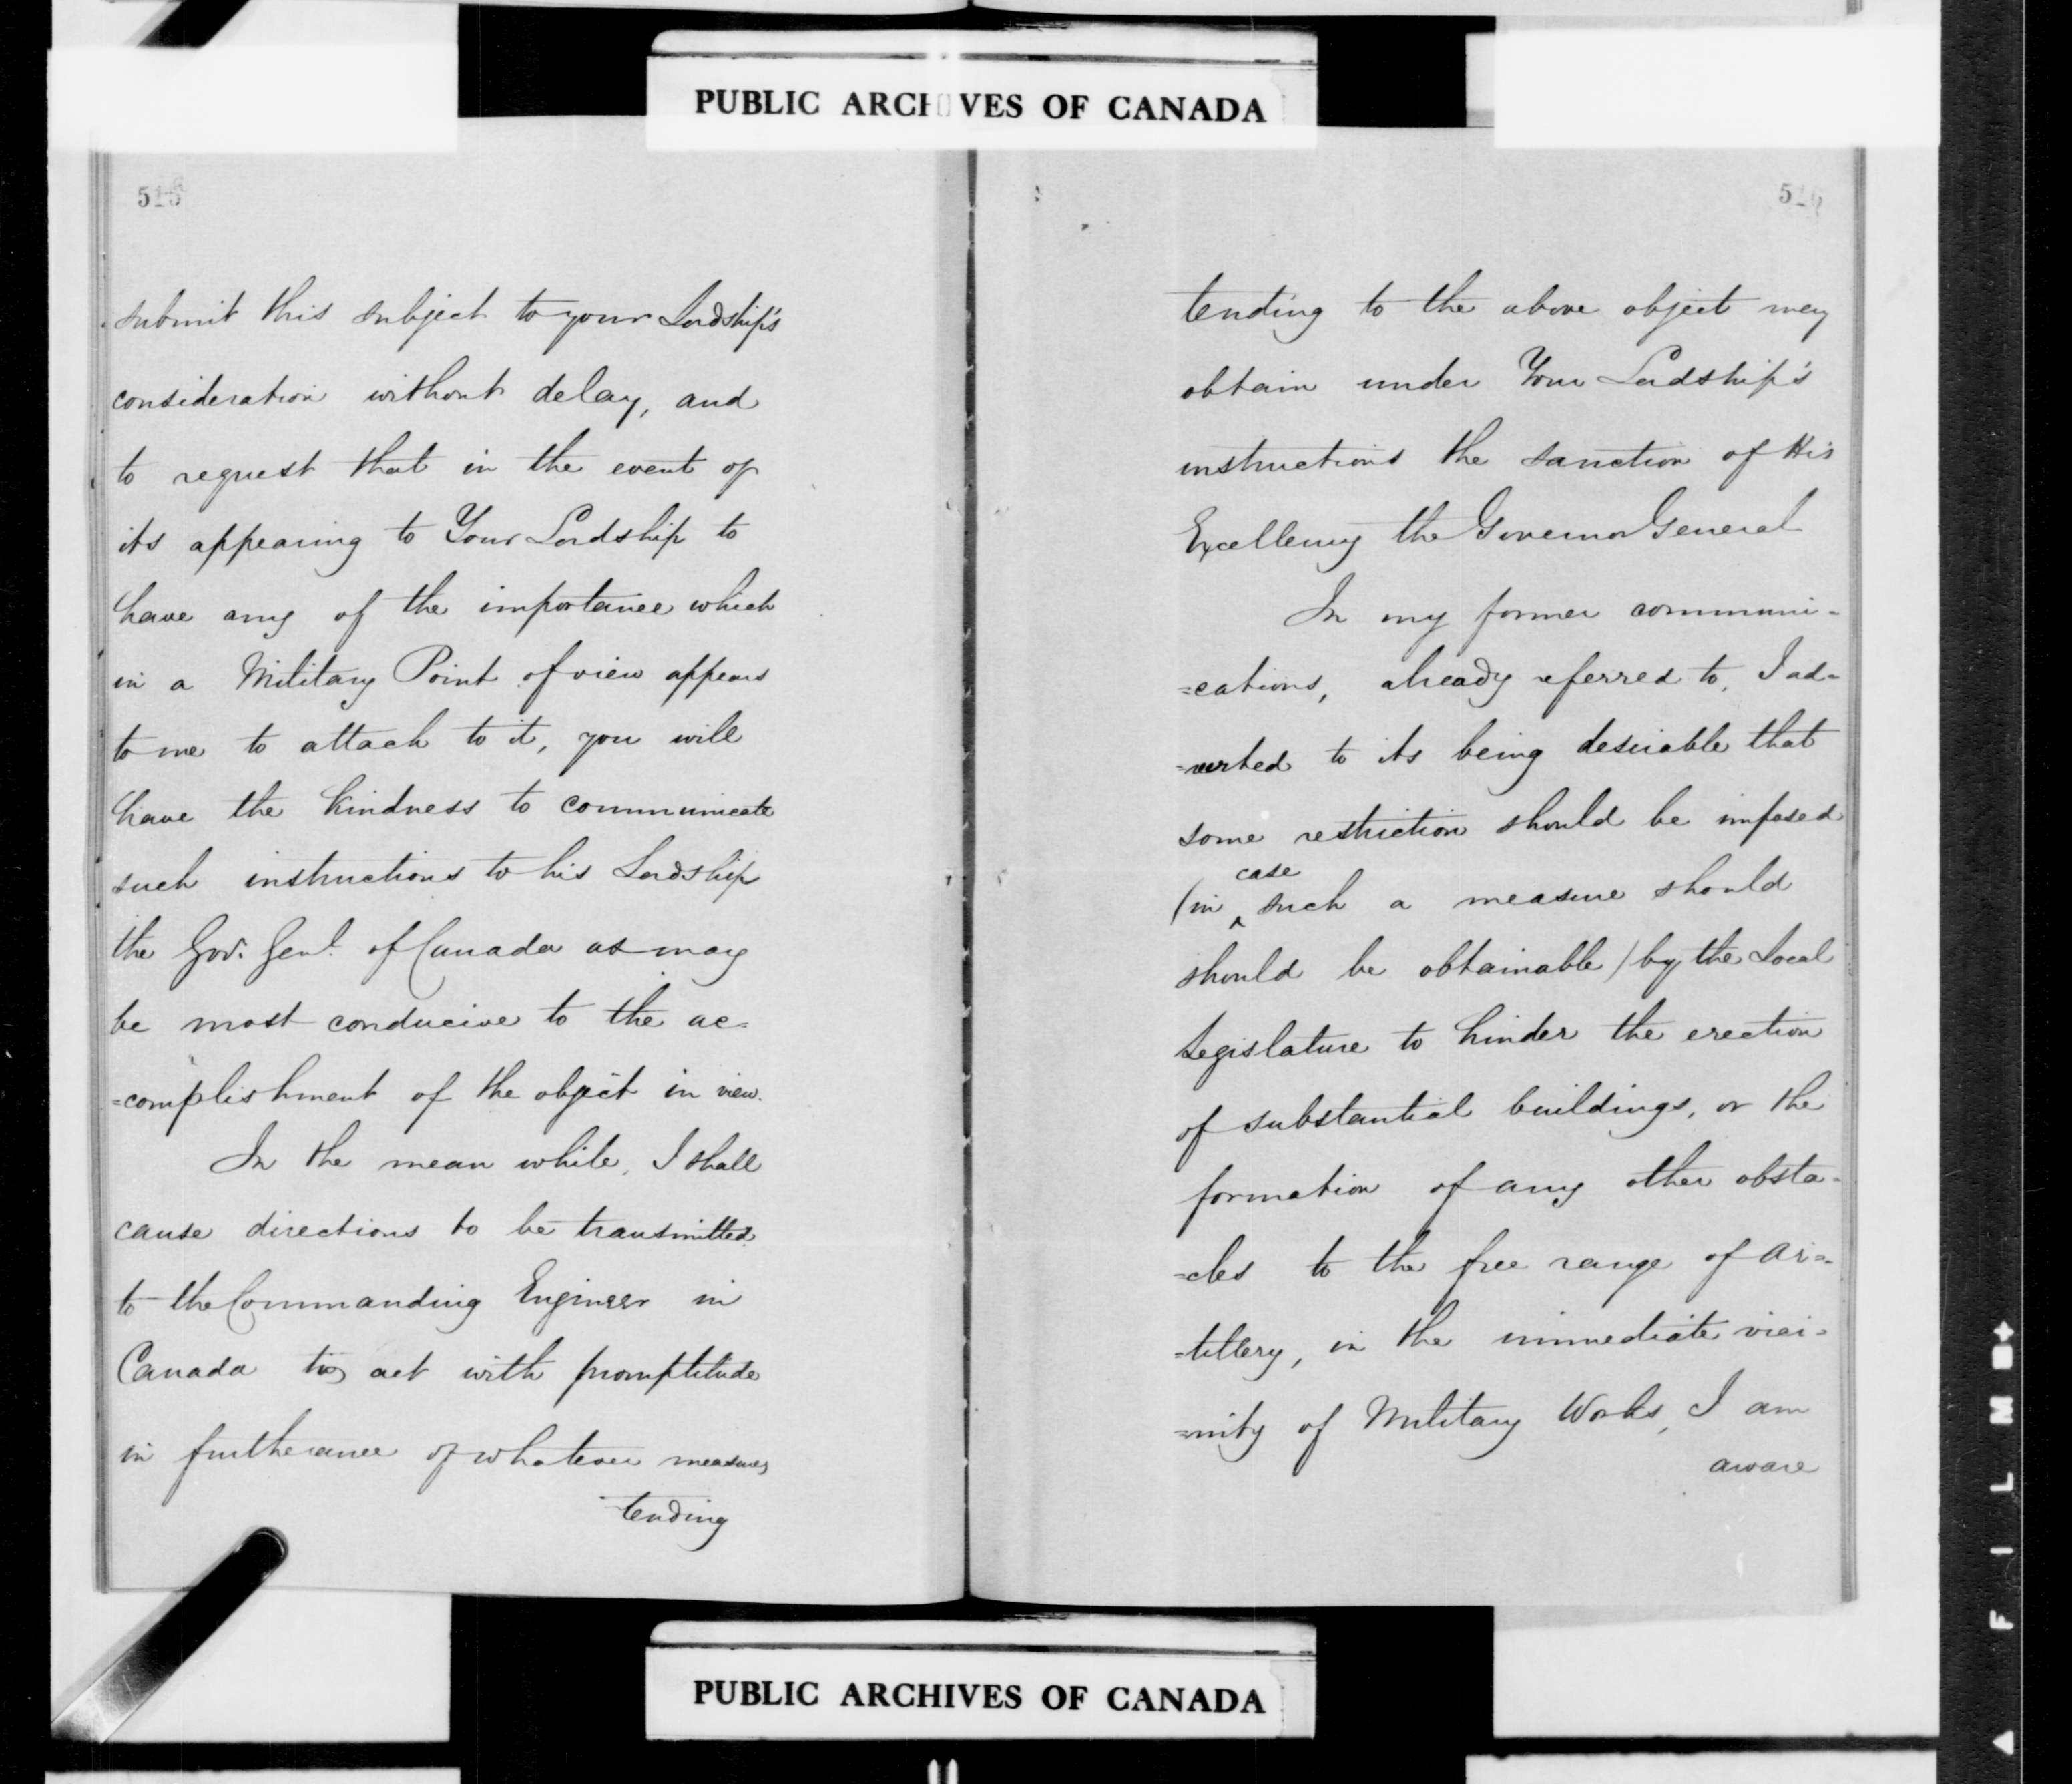 PUBLIC ARCHIVES OF CANADA
submit this subject to your Lordship's
consideration without delay, and
to request that in the event of
its appearing to Your Lordship to
have any of the importance which
in a Military Point of view appears
to me to attach to it, you will
have the kindness to communicate
such instructions to his Lordship
the Govr. Genl. of Canada as may
be most conducive to the ac-
=complishment of the object in view.
In the mean while, I shall
cause directions to be transmitted
to the Commanding Engineer in
Canada to act with promptitude
in furtherance of whatever measures
tending
tending to the above object may
obtain under Your Lordship's
instructions the sanction of His
Excellency the Governor General
In my former communi=
=cations, already referred to, I ad=
=verted to its being desirable that
some restriction should be imposed
case
(in ‸ such a measure should
should be obtainable) by the Local
Legislature to hinder the erection
of substantial buildings, or the
formation of any other obsta=
=cles to the free range of Ar=
=tillery, in the immediate vici=
=nity of Military Works, I am
aware
PUBLIC ARCHIVES OF CANADA
FILM